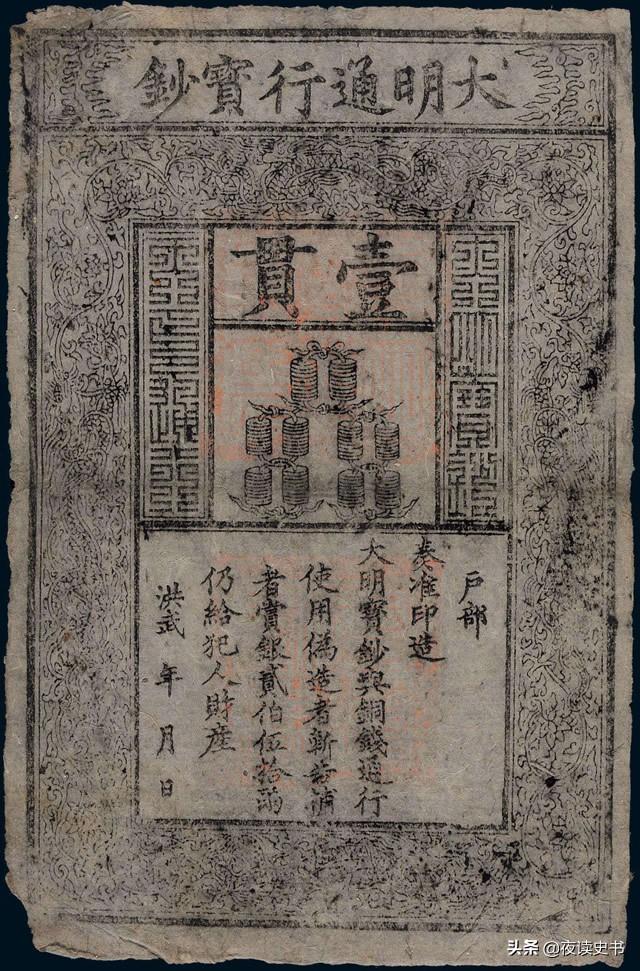 大明通行寶鈔
壹貫
大明寶鈔
天下通行
戶部
奏准印造
大明寶鈔與銅錢通行
使用偽造者斬告捕
者賞銀貳伯伍拾兩
仍給犯人財産
洪武 年 月 日
头条 @夜读史书